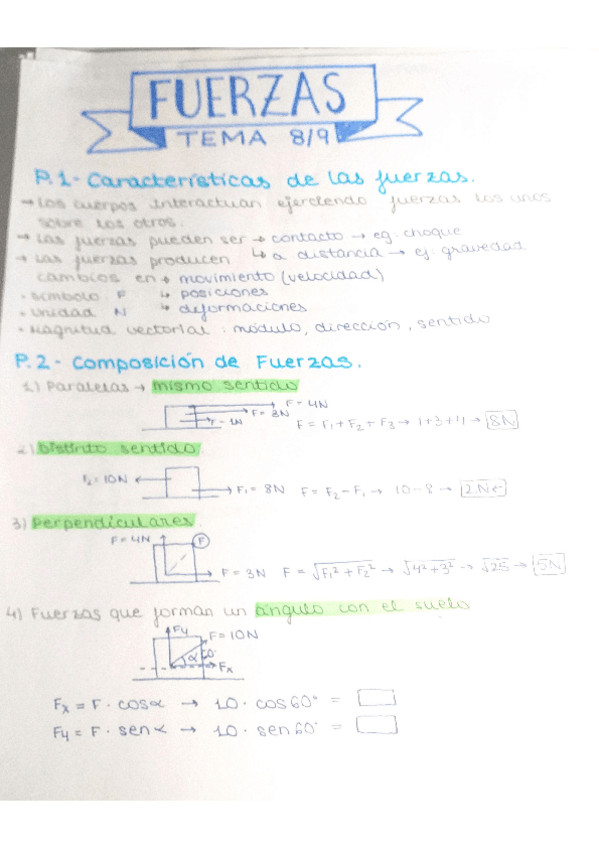 FUERZAS
TEMA 8/9
P.1- Características de las fuerzas.
→ Los cuerpos interactúan ejerciendo fuerzas los unos
sobre los otros.
→ Las fuerzas pueden ser → contacto → eg: choque
↳ a distancia → ej: gravedad
→ Las fuerzas producen
cambios en → movimiento (velocidad)
↳ posiciones
↳ deformaciones
• Símbolo: F
• Unidad N
• Magnitud vectorial: módulo, dirección, sentido
P.2- Composición de Fuerzas.
1) Paralelas → mismo sentido
F = 4N
F = 3N
F = 1N
F = F₁ + F₂ + F₃ → 1+3+4 → 8N
2) Distinto sentido
F₂ = 10N
F₁ = 8N
F = F₂ - F₁ → 10 - 8 → 2N←
3) Perpendiculares
F = 4N
F
F = 3N
F = √F₁² + F₂² → √4² + 3² → √25 → 5N
4) Fuerzas que forman un ángulo con el suelo
Fy
F = 10N
α
60°
Fx
Fx = F · cosα → 10 · cos 60° =
Fy = F · senα → 10 · sen 60° =